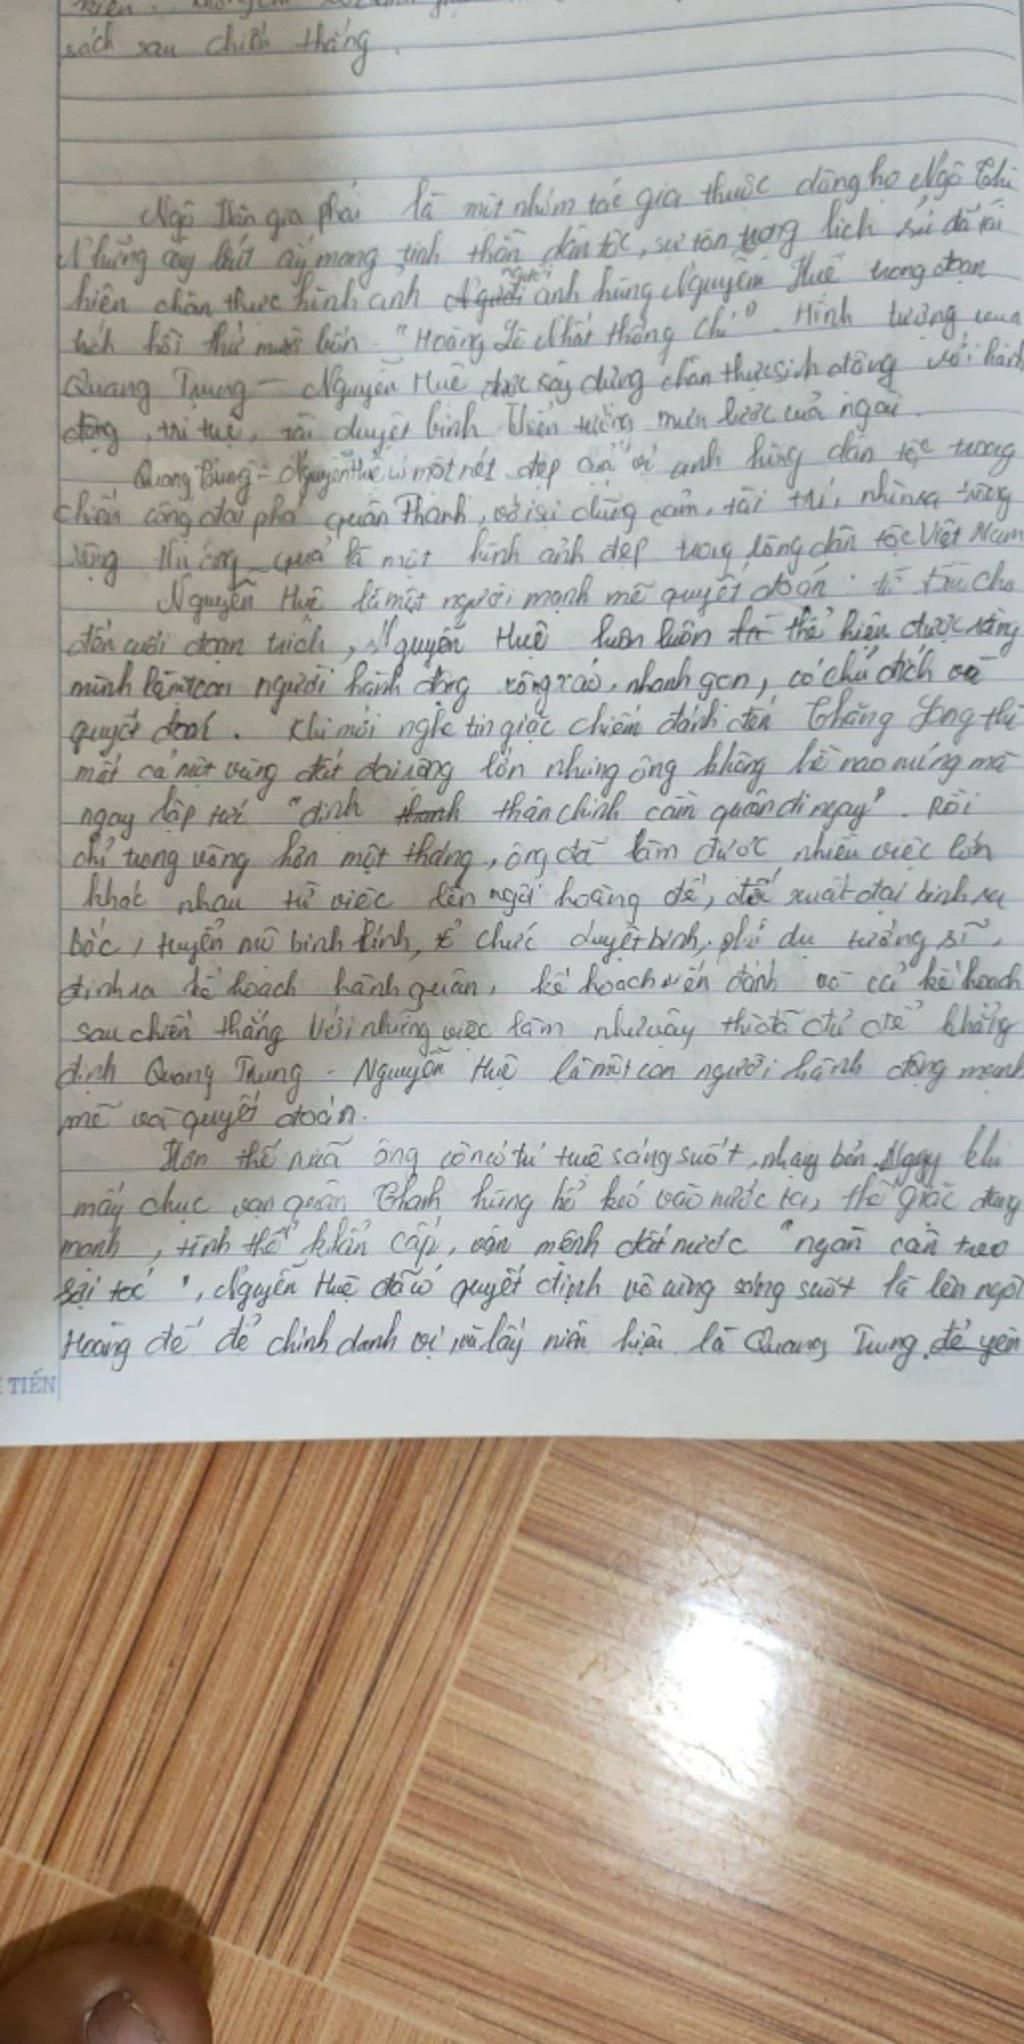 sách sau chiến thắng.
Ngô Văn gia phái là một nhóm tác giả thuộc dòng họ Ngô Thì
Những cây bút ấy mang tinh thần dân tộc, sự tôn trọng lịch sử đã tái
hiện chân thực hình ảnh người anh hùng Nguyễn Huệ trong đoạn
trích hồi thứ mười bốn "Hoàng Lê Nhất thống Chí". Hình tượng vua
Quang Trung - Nguyễn Huệ được xây dựng chân thực sinh động với hành
động, trí tuệ, tài duyệt binh khiển tướng mưu lược của ngài.
Quang Trung - Nguyễn Huệ một nét đẹp của vị anh hùng dân tộc trong
chiến công đại phá quân Thanh, với sự dũng cảm, tài trí, nhìn xa trông
rộng quả là một hình ảnh đẹp trong lòng dân tộc Việt Nam
Nguyễn Huệ là một người mạnh mẽ quyết đoán: từ đầu cho
đến cuối đoạn trích, Nguyễn Huệ luôn luôn thể hiện được rằng
mình là một con người hành động xông xáo, nhanh gọn, có chủ đích và
quyết đoán. Khi mới nghe tin giặc chiếm đánh đến Thăng Long thì
mất cả một vùng đất đai rộng lớn nhưng ông không hề nao núng mà
ngay lập tức "định thân chinh cầm quân đi ngay". Rồi
chỉ trong vòng hơn một tháng, ông đã làm được nhiều việc lớn
khác nhau từ việc lên ngôi hoàng đế, đốc xuất đại binh ra
bắc, tuyển mộ binh lính, tổ chức duyệt binh, phủ dụ tướng sĩ,
định ra kế hoạch hành quân, kế hoạch tiến đánh và cả kế hoạch
sau chiến thắng Với những việc làm như vậy thì đã đủ để khẳng
định Quang Trung - Nguyễn Huệ là một con người hành động mạnh
mẽ và quyết đoán.
Hơn thế nữa ông còn có trí tuệ sáng suốt, nhạy bén. Ngay khi
mấy chục vạn quân Thanh hùng hổ kéo vào nước ta, thế giặc đang
mạnh, tình thế khẩn cấp, vận mệnh đất nước "ngàn cân treo
sợi tóc", Nguyễn Huệ đã có quyết định vô cùng sáng suốt là lên ngôi
Hoàng đế để chính danh vị, và lấy niên hiệu là Quang Trung. để yên
TIẾN